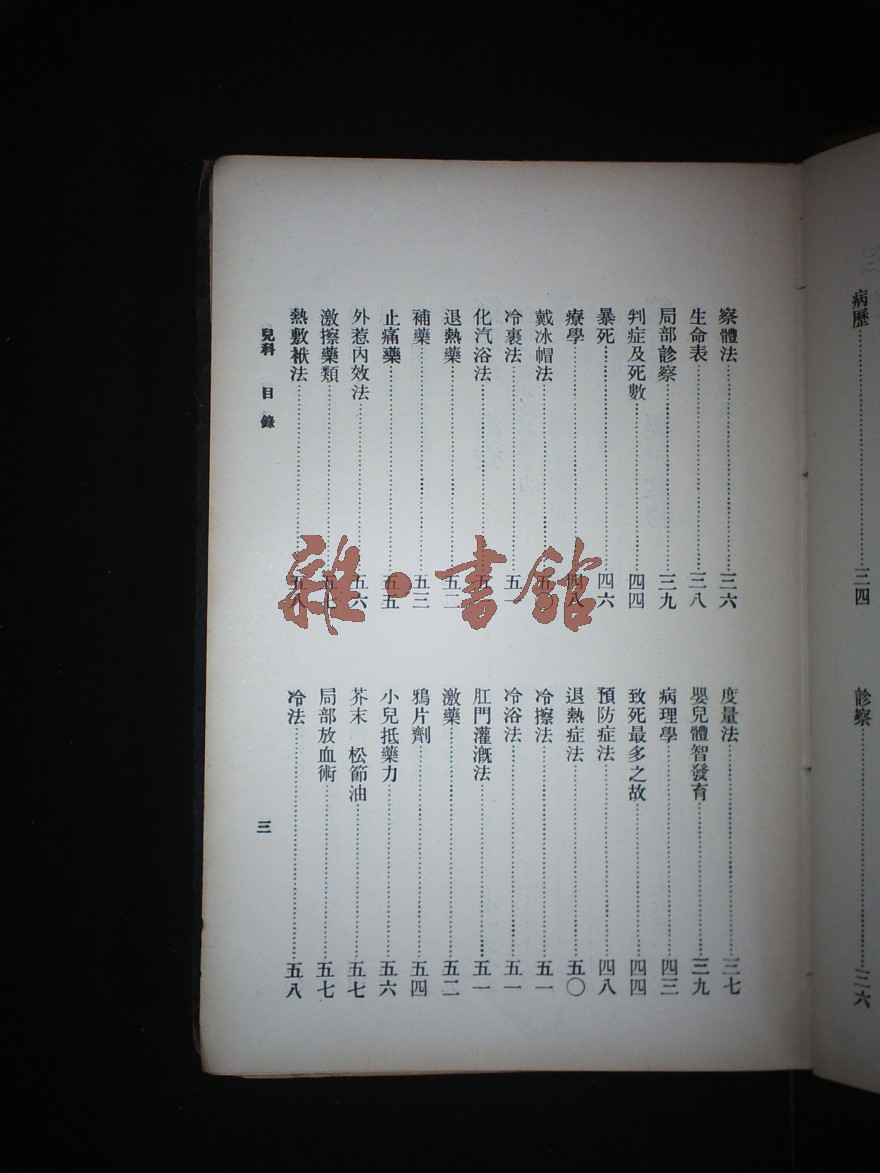 病歷……三四
診察……三六
察體法……三六
度量法……三七
生命表……三八
嬰兒體智發育……三九
局部診察……三九
病理學……四三
判症及死數……四四
致死最多之故……四四
暴死……四六
預防症法……四八
療學……四八
退熱症法……五〇
戴冰帽法……五〇
冷擦法……五一
冷裹法……五一
冷浴法……五一
化汽浴法……五一
肛門灌漑法……五一
退熱藥……五二
激藥……五二
補藥……五三
鴉片劑……五四
止痛藥……五五
小兒抵藥力……五六
外惹內效法……五六
芥末 松節油……五七
激擦藥類……五七
局部放血術……五七
熱敷袱法……五八
冷法……五八
兒科 目錄
三
雜·書館